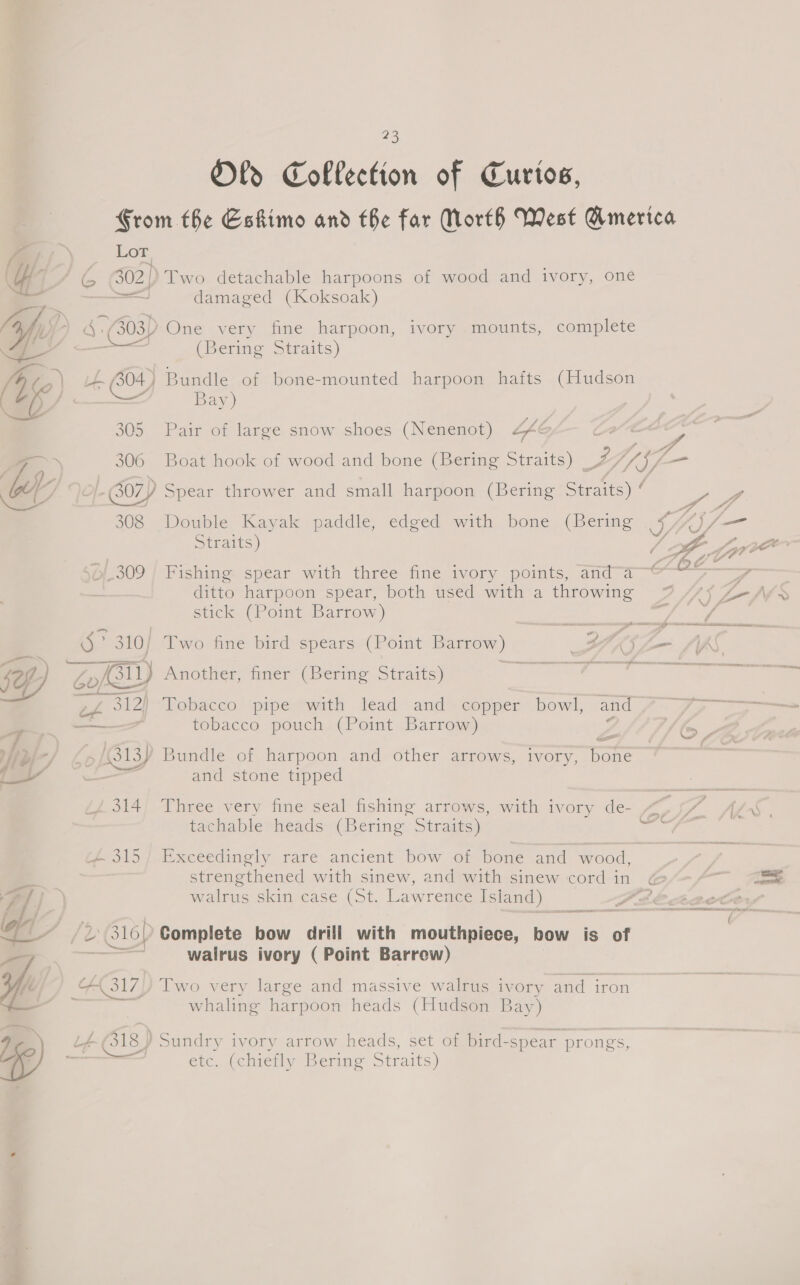 23
Old Collection of Curios,
From the Eskimo and the far North West America
Lot
302 Two detachable harpoons of wood and ivory, one
damaged (Koksoak)
303 One very fine harpoon, ivory mounts, complete
(Bering Straits)
304 Bundle of bone-mounted harpoon hafts (Hudson
Bay)
305 Pair of large snow shoes (Nenenot)
306 Boat hook of wood and bone (Bering Straits)
307 Spear thrower and small harpoon (Bering Straits)
308 Double Kayak paddle, edged with bone (Bering
Straits)
309 Fishing spear with three fine ivory points, and a
ditto harpoon spear, both used with a throwing
stick (Point Barrow)
310 Two fine bird spears (Point Barrow)
311 Another, finer (Bering Straits)
312 Tobacco pipe with lead and copper bowl, and
tobacco pouch (Point Barrow)
313 Bundle of harpoon and other arrows, ivory, bone
and stone tipped
314 Three very fine seal fishing arrows, with ivory de-
tachable heads (Bering Straits)
315 Exceedingly rare ancient bow of bone and wood,
strengthened with sinew, and with sinew cord in
walrus skin case (St. Lawrence Island)
316 Complete bow drill with mouthpiece, bow is of
walrus ivory (Point Barrow)
317 Two very large and massive walrus ivory and iron
whaling harpoon heads (Hudson Bay)
318 Sundry ivory arrow heads, set of bird-spear prongs,
etc. (chiefly Bering Straits)